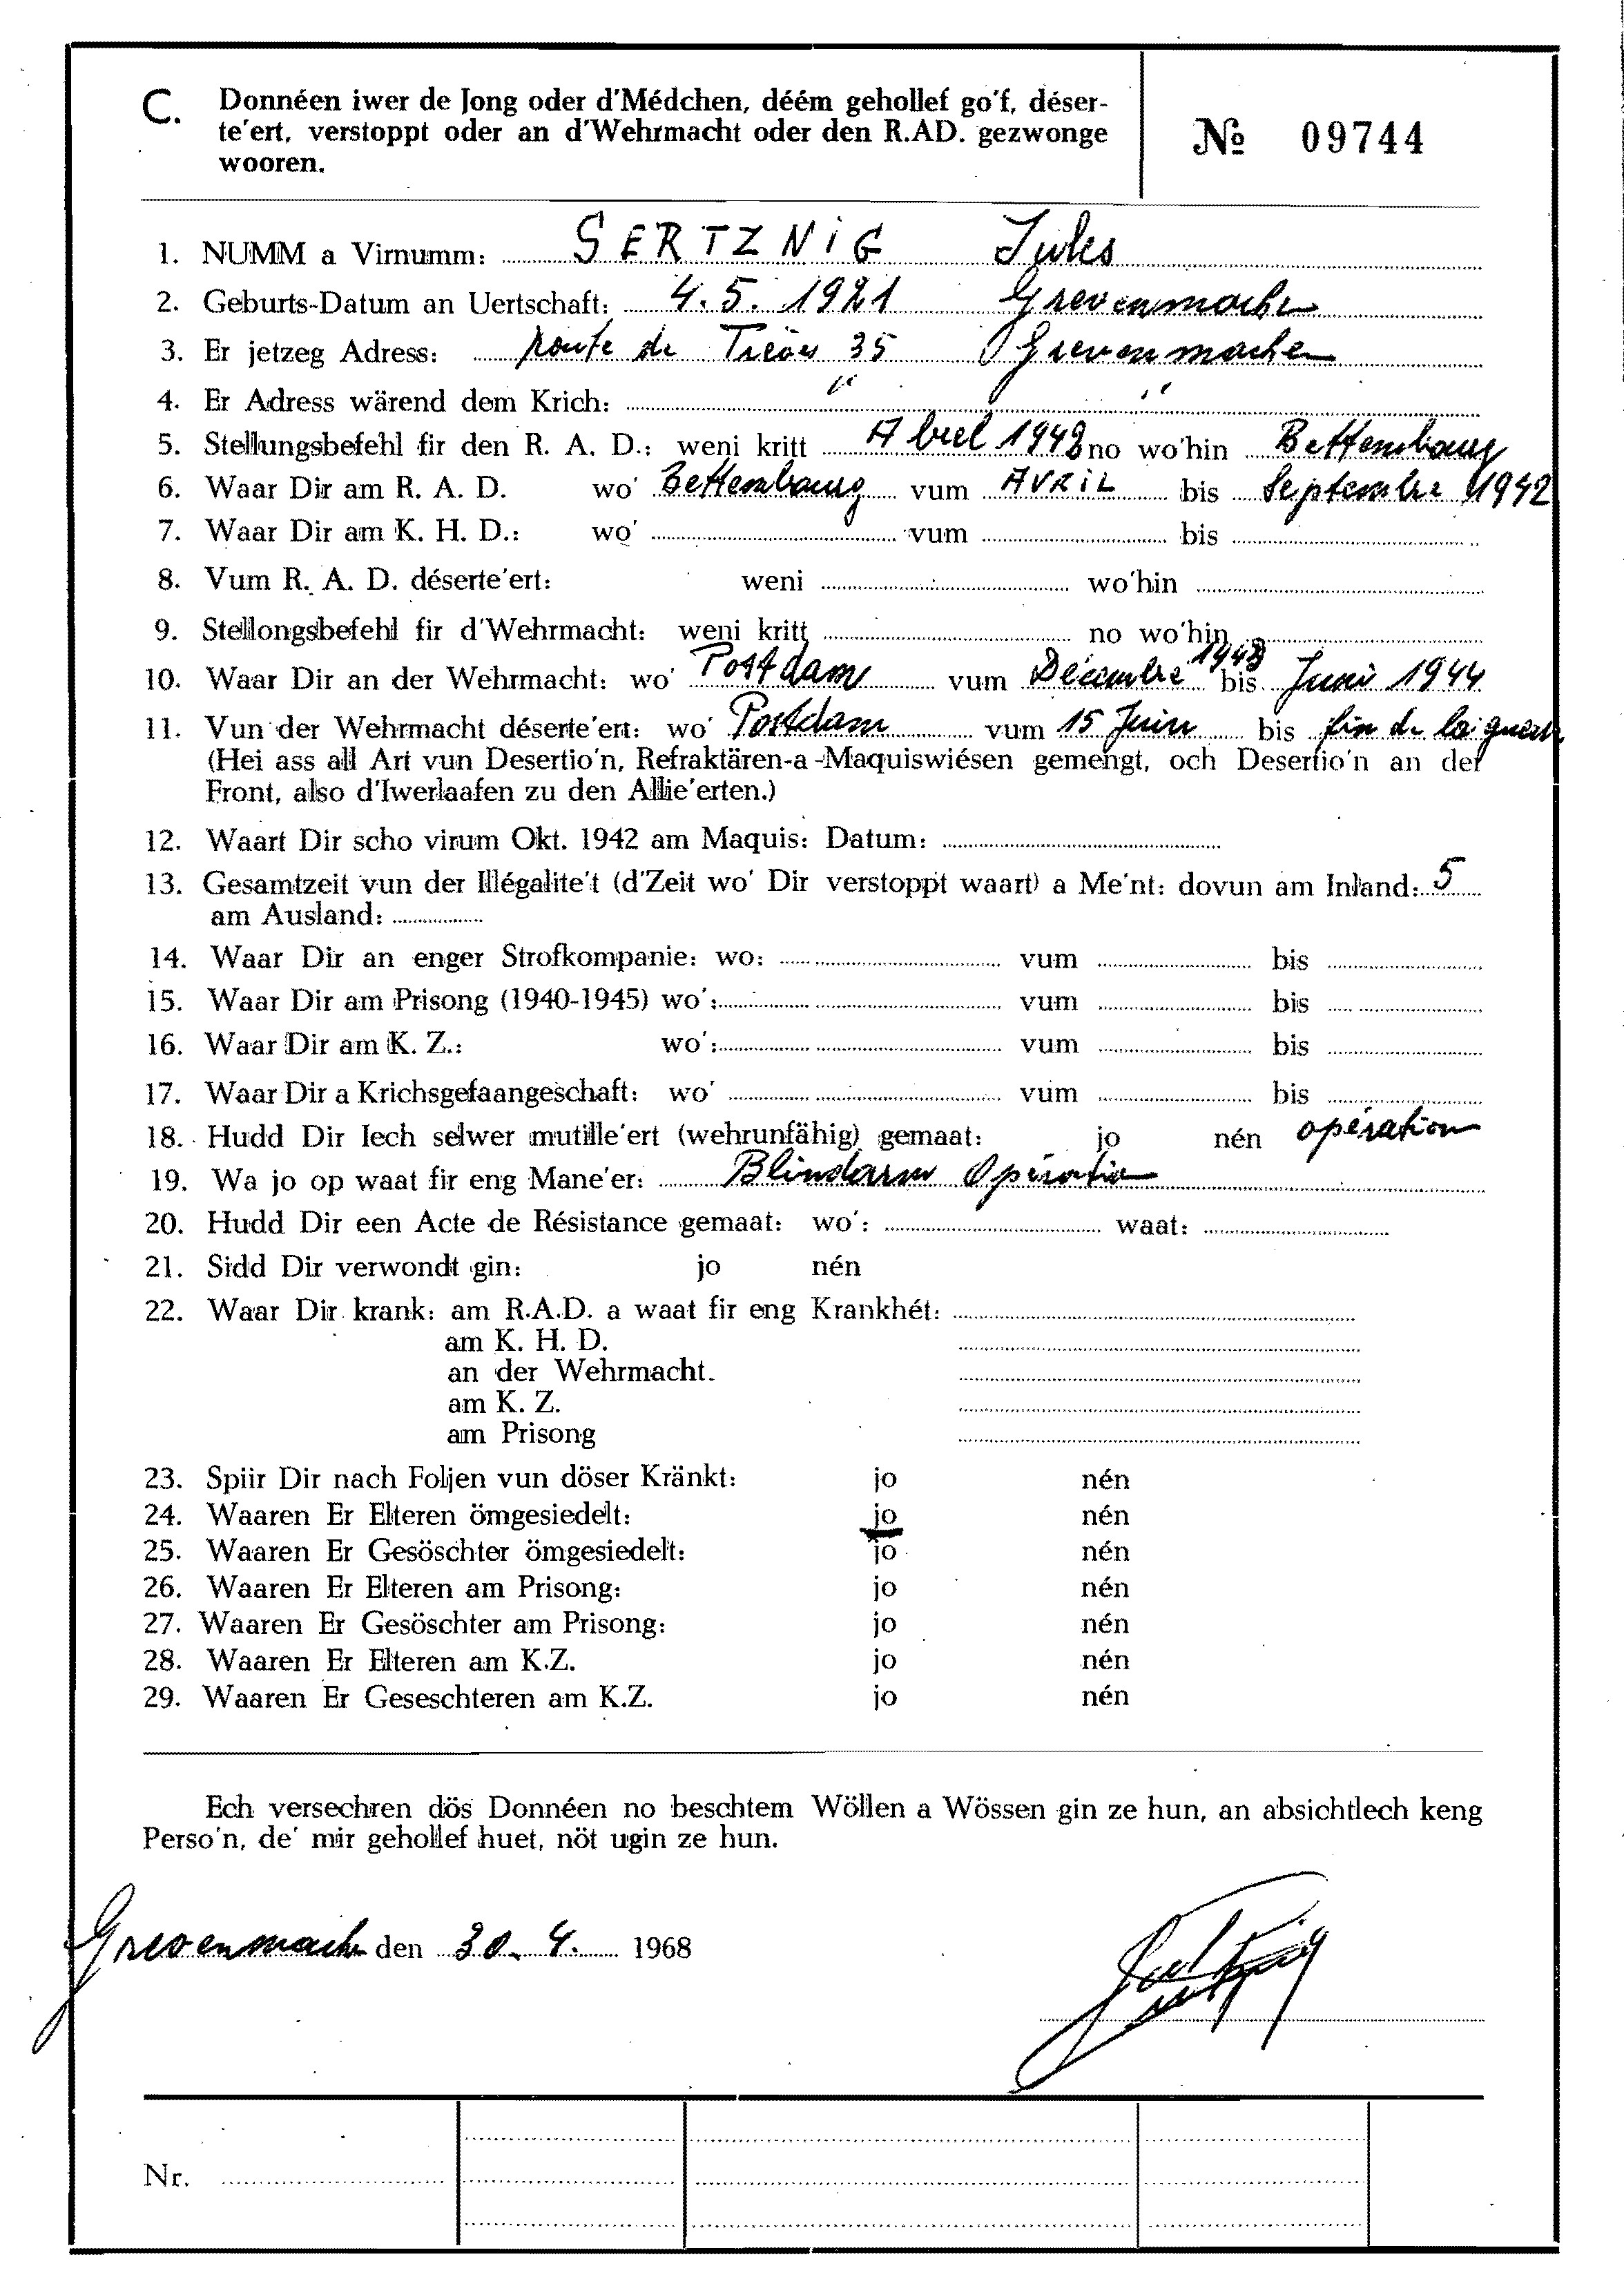 C. Donnéen iwer de Jong oder d'Médchen, déém gehollef go'f, déser-
te'ert, verstoppt oder an d'Wehrmacht oder den R.AD. gezwonge
wooren.
№ 09744
1. NUMM a Virnumm: SERTZNiG Jules
2. Geburts-Datum an Uertschaft: 4.5.1921 Grevenmacher
3. Er jetzeg Adress: route de Trèves 35 Grevenmacher
4. Er Adress wärend dem Krich: " "
5. Stellungsbefehl fir den R. A. D.: weni kritt 1942 no wo'hin Bettembourg
6. Waar Dir am R. A. D. wo' Bettembourg vum AVRiL bis Septembre 1942
7. Waar Dir am K. H. D.: wo' vum bis
8. Vum R. A. D. déserte'ert: weni wo'hin
9. Stellongsbefehl fir d'Wehrmacht: weni kritt no wo'hin
10. Waar Dir an der Wehrmacht: wo' Postdam vum Décembre bis Juni 1944
11. Vun der Wehrmacht déserte'ert: wo' Postdam vum 15 Juin bis fin de la guerre
(Hei ass all Art vun Desertio'n, Refraktären-a-Maquiswiésen gemengt, och Desertio'n an der
Front, also d'Iwerlaafen zu den Allie'erten.)
12. Waart Dir scho virum Okt. 1942 am Maquis: Datum:
13. Gesamtzeit vun der Illégalite't (d'Zeit wo' Dir verstoppt waart) a Me'nt: dovun am Inland: 5
am Ausland:
14. Waar Dir an enger Strofkompanie: wo: vum bis
15. Waar Dir am Prisong (1940-1945) wo': vum bis
16. Waar Dir am K. Z.: wo': vum bis
17. Waar Dir a Krichsgefaangeschaft: wo' vum bis
18. Hudd Dir Iech selwer mutille'ert (wehrunfähig) gemaat: jo nén opération
19. Wa jo op waat fir eng Mane'er: Blindarm Opération
20. Hudd Dir een Acte de Résistance gemaat: wo': waat:
21. Sidd Dir verwondt gin: jo nén
22. Waar Dir krank: am R.A.D. a waat fir eng Krankhét:
am K. H. D.
an der Wehrmacht.
am K. Z.
am Prisong
23. Spiir Dir nach Foljen vun döser Kränkt: jo nén
24. Waaren Er Elteren ömgesiedelt: jo nén
25. Waaren Er Gesöschter ömgesiedelt: jo nén
26. Waaren Er Elteren am Prisong: jo nén
27. Waaren Er Gesöschter am Prisong: jo nén
28. Waaren Er Elteren am K.Z. jo nén
29. Waaren Er Geseschteren am K.Z. jo nén
Ech versechren dös Donnéen no beschtem Wöllen a Wössen gin ze hun, an absichtlech keng
Perso'n, de' mir gehollef huet, nöt ugin ze hun.
Grevenmacher den 30. 4. 1968
Nr.